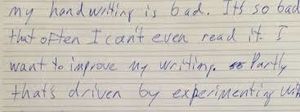 my handwriting is bad. Its so bad
that often I can't even read it. I
want to improve my writing. Partly
thats driven by experimenting with